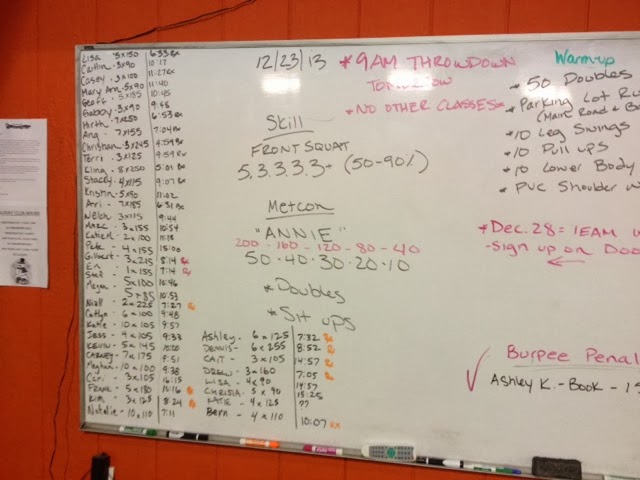 Lisa - 3x150 6:33 Rx
Caitlin - 3x90 10:17
Casey - 3x100 11:27 Rx
Mary Ann - 5x90 11:40
Geoff - 5x155 10:45
Gabby - 3x90 9:48
Hirth - 7x250 6:53 Rx
Ang - 7x155 7:04 Rx
Christian - 3x245 4:59 Rx
Terri - 3x125 9:59 Rx
Kling - 8x250 5:01 Rx
Stacey - 4x115 9:07 Rx
Kristin - 5x90 11:02
Ari - 7x185 6:31 Rx
Welch - 3x115 9:44
Marc - 3x155 10:54
- 2x100 11:18
Pete - 4x155 15:00
Gilbert - 3x215 8:14 Rx
Eri - 1x155 7:14 Rx
5x100 10:46
Megan - 5x85 10:53
Niall - 2x225 7:27 Rx
Catlyn - 6x100 9:48
Katie - 10x105 9:57
Jess - 4x105 9:33
Kevin - 5x145 10:00
Carney - 7x175 9:51
Meghan - 10x100 9:38
Cari - 3x105 16:15
Frank - 5x180 11:16 Rx
Kim - 3x125 8:24 Rx
Natalie - 10x110 7:11
Ashley - 6x125 7:32 Rx
Dennis - 6x255 8:52 Rx
Cait - 3x105 14:57 Rx
Drew - 3x160 7:05 Rx
Lisa - 4x90 14:57
Chrisia - 5x90 15:25
Katie - 4x125 ??
Bern - 4x110 10:07 Rx
12/23/13
Skill
FRONT SQUAT
5, 3, 3, 3, 3+ (50-90%)
Metcon
"ANNIE"
200 - 160 - 120 - 80 - 40
50 - 40 - 30 - 20 - 10
*Doubles
*Sit ups
*9AM THROWDOWN
TOMORROW
*NO OTHER CLASSES*
Warm-up
*50 Doubles
*Parking Lot Ru
(Main Road & B
*10 Leg Swings
*10 Pull ups
*10 Lower Body
*PVC Shoulder
*Dec. 28 = TEAM
-Sign up on Doo
Burpee Penal
Ashley K. - Book - 1